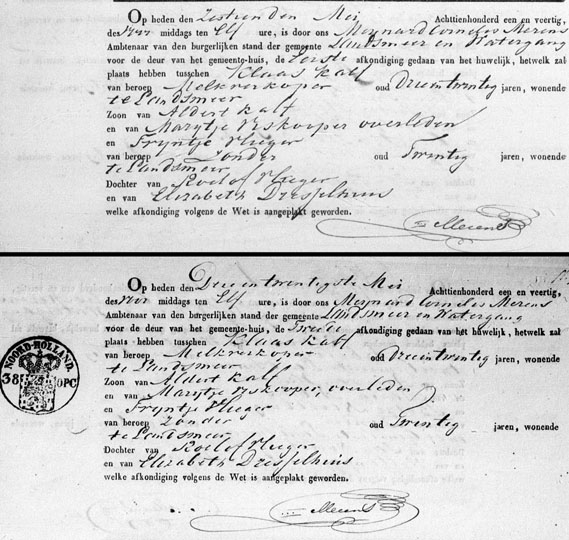 Op heden den Zestienden Mei Achttienhonderd een en veertig,
des voor middags ten Elf ure, is door ons Meijnard Cornelis Merens
Ambtenaar van den burgerlijken stand der gemeente Landsmeer en Watergang
voor de deur van het gemeente-huis, de Eerste afkondiging gedaan van het huwelijk, hetwelk zal
plaats hebben tusschen Klaas Kalf
van beroep Melkverkoper oud Drieentwintig jaren, wonende
te Landsmeer
Zoon van Aldert Kalf
en van Marijtje Viskooper overleden
en Trijntje Vlieger
van beroep Zonder oud Twintig jaren, wonende
te Landsmeer
Dochter van Roelof Vlieger
en van Elizabeth Dresselhuis
welke afkondiging volgens de Wet is aangeplakt geworden.
Merens
Op heden den Drieentwintigste Mei Achttienhonderd een en veertig,
des voor middags ten Elf ure, is door ons Meijnard Cornelis Merens
Ambtenaar van den burgerlijken stand der gemeente Landsmeer en Watergang
voor de deur van het gemeente-huis, de Tweede afkondiging gedaan van het huwelijk, hetwelk zal
plaats hebben tusschen Klaas Kalf
van beroep Melkverkoper oud Drieentwintig jaren, wonende
te Landsmeer
Zoon van Aldert Kalf
en van Marijtje Viskooper, overleden
en Trijntje Vlieger
NOORD-HOLLAND.
38 OPC
van beroep Zonder oud Twintig jaren, wonende
te Landsmeer
Dochter van Roelof Vlieger
en van Elizabeth Dresselhuis
welke afkondiging volgens de Wet is aangeplakt geworden.
Merens